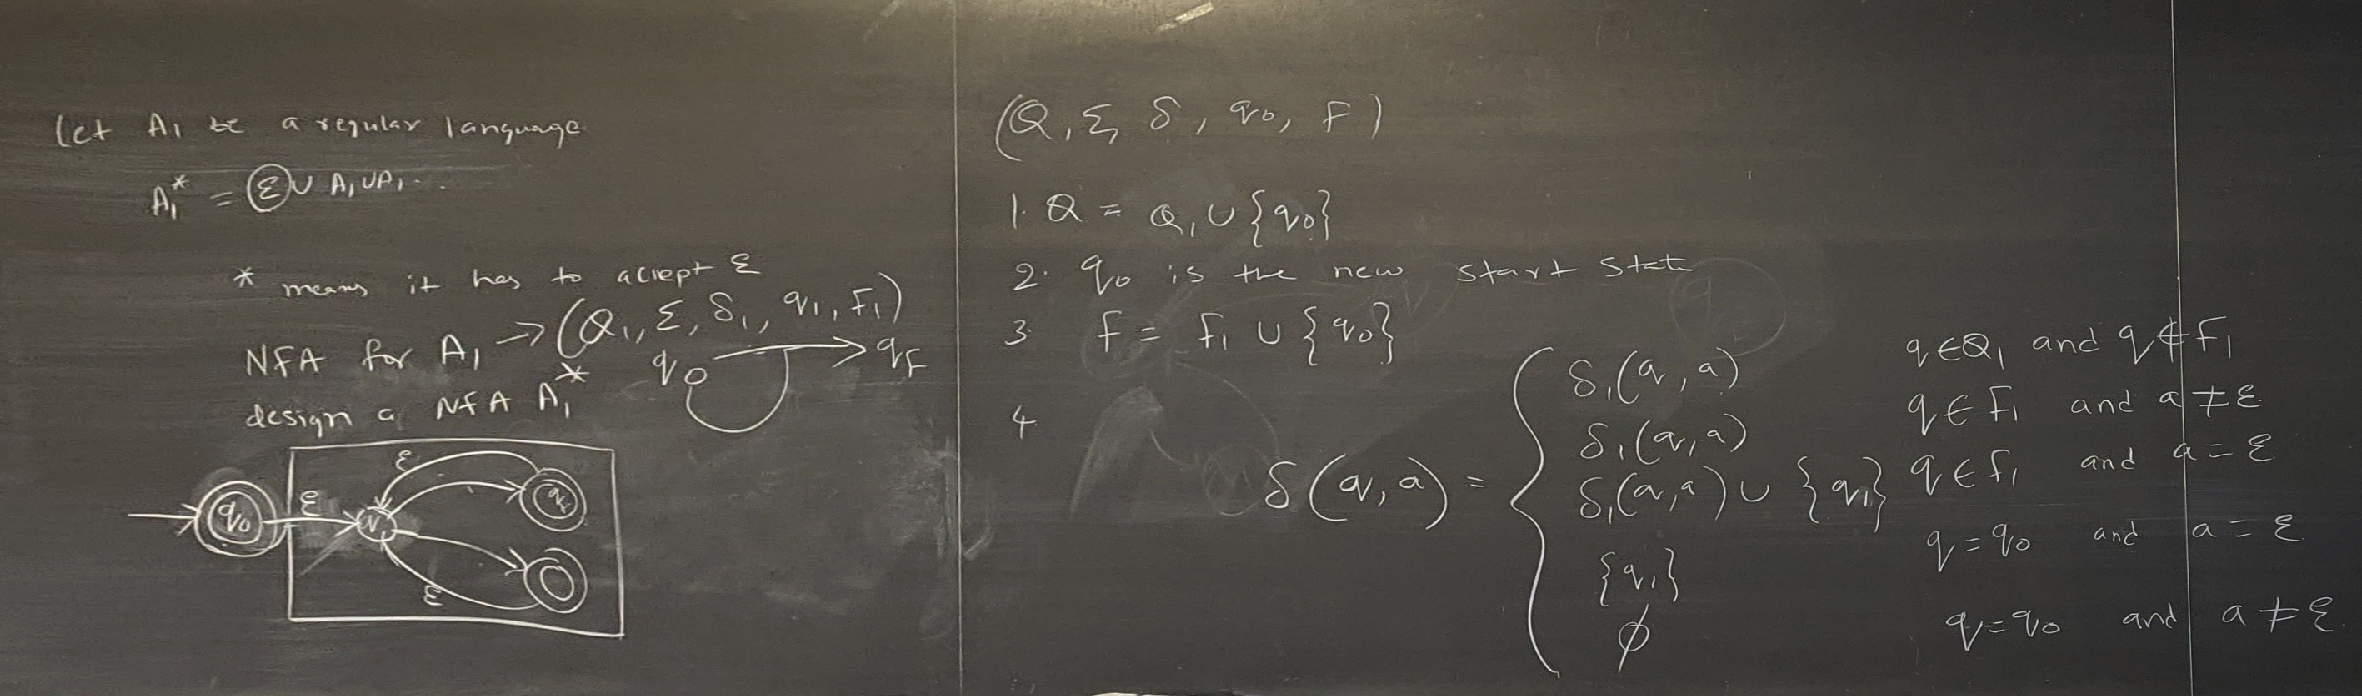 Let A₁ be a regular language
A₁* = ε ∪ A₁ ∪ A₁ ...
* means it has to accept ε
NFA for A₁ → (Q₁, Σ, δ₁, q₁, F₁)
q₀ → qF
design a NFA A₁*
ε
q₀ ε q₁
ε
(Q, Σ, δ, q₀, F)
1. Q = Q₁ ∪ {q₀}
2. q₀ is the new start state
3. F = F₁ ∪ {q₀}
4
δ(q, a) =
δ₁(q, a) q ∈ Q₁ and q ∉ F₁
δ₁(q, a) q ∈ F₁ and a ≠ ε
δ₁(q, a) ∪ {q₁} q ∈ F₁ and a = ε
{q₁} q = q₀ and a = ε
ϕ q = q₀ and a ≠ ε